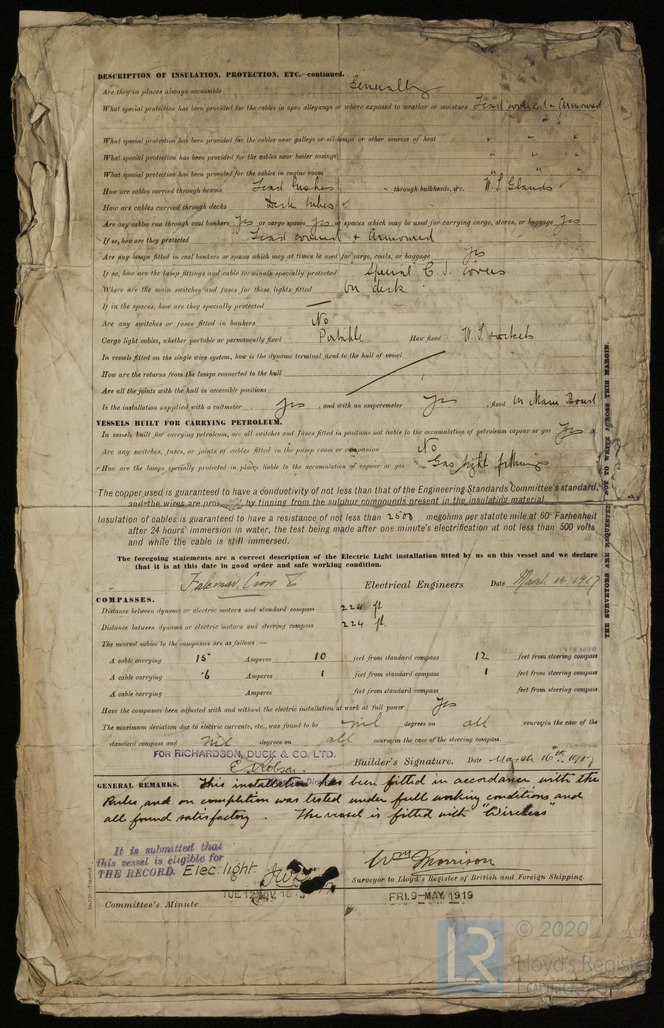 DESCRIPTION OF INSULATION, PROTECTION, ETC.—continued.
Are they in places always accessible Generally
What special protection has been provided for the cables in open alleyways or where exposed to weather or moisture Lead covered & Armoured
What special protection has been provided for the cables near galleys or oil lamps or other sources of heat " " "
What special protection has been provided for the cables near boiler casings " " "
What special protection has been provided for the cables in engine room " " "
How are cables carried through beams Lead bushes through bulkheads, &c. W.T. Glands
How are cables carried through decks Deck tubes
Are any cables run through coal bunkers Yes or cargo spaces Yes or spaces which may be used for carrying cargo, stores, or baggage Yes
If so, how are they protected Lead covered & Armoured
Are any lamps fitted in coal bunkers or spaces which may at times be used for cargo, coals, or baggage Yes
If so, how are the lamp fittings and cable terminals specially protected Special C. I. covers
Where are the main switches and fuses for these lights fitted On deck
If in the spaces, how are they specially protected —
Are any switches or fuses fitted in bunkers No
Cargo light cables, whether portable or permanently fixed Portable How fixed W.T. sockets
In vessels fitted on the single wire system, how is the dynamo terminal fixed to the hull of vessel
How are the returns from the lamps connected to the hull
Are all the joints with the hull in accessible positions
Is the installation supplied with a voltmeter Yes, and with an amperemeter Yes, fixed on Main Board
VESSELS BUILT FOR CARRYING PETROLEUM.
In vessels built for carrying petroleum, are all switches and fuses fitted in positions not liable to the accumulation of petroleum vapour or gas Yes
Are any switches, fuses, or joints of cables fitted in the pump room or companion No
How are the lamps specially protected in places liable to the accumulation of vapour or gas Gas tight fittings
The copper used is guaranteed to have a conductivity of not less than that of the Engineering Standards Committee's standard,
and the wires are by tinning from the sulphur compounds present in the insulating material.
Insulation of cables is guaranteed to have a resistance of not less than 2500 megohms per statute mile at 60° Farhenheit
after 24 hours' immersion in water, the test being made after one minute's electrification at not less than 500 volts
and while the cable is still immersed.
The foregoing statements are a correct description of the Electric Light installation fitted by us on this vessel and we declare
that it is at this date in good order and safe working condition.
Electrical Engineers Date March 14. 1917
COMPASSES.
Distance between dynamo or electric motors and standard compass 224 ft
Distance between dynamo or electric motors and steering compass 224 ft
The nearest cables to the compasses are as follows:—
A cable carrying 15 Amperes 10 feet from standard compass 12 feet from steering compass
A cable carrying .6 Amperes 1 feet from standard compass 1 feet from steering compass
A cable carrying Amperes feet from standard compass feet from steering compass
Have the compasses been adjusted with and without the electric installation at work at full power Yes
The maximum deviation due to electric currents, etc., was found to be nil degrees on all course in the case of the
standard compass and nil degrees on all course in the case of the steering compass.
FOR RICHARDSON, DUCK & CO. LTD.
Builder's Signature. Date March 16th 1917
GENERAL REMARKS. This installation has been fitted in accordance with the
Rules and on completion was tested under full working conditions and
all found satisfactory. The vessel is fitted with "Wireless"
It is submitted that
this vessel is eligible for
THE RECORD. Elec. light.
Wm Morrison
Surveyor to Lloyd's Register of British and Foreign Shipping.
Committee's Minute
FRI. 9-MAY. 1919
THE SURVEYORS ARE REQUESTED NOT TO WRITE ACROSS THIS MARGIN
LR
© 2020
Lloyd's Register
Foundation